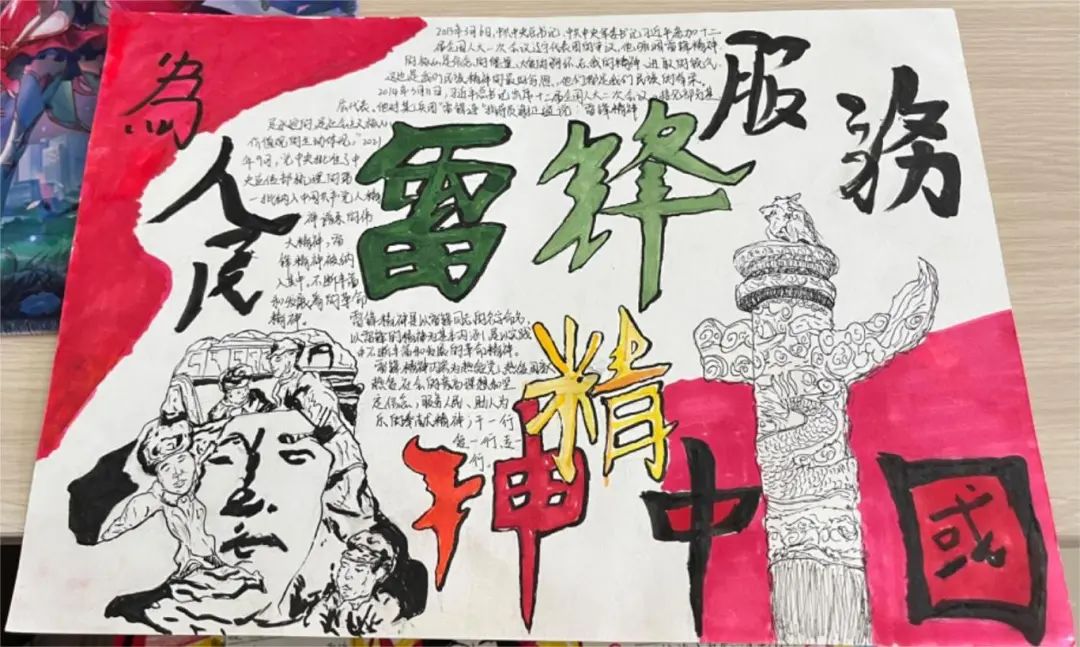 為
人
民
服
務
雷鋒
精
神
中
國
2013年3月6日,中共中央总书记、中共中央军委书记习近平参加十二
届全国人大一次会议辽宁代表团的审议,他强调雷锋精神
的核心是信念的能量、大爱的胸怀、忘我的精神、进取的锐气,
这也是我们民族精神的最好写照,他们都是我们民族的脊梁。
2014年3月11日,习近平总书记出席十二届全国人大二次会议
代表,他对某集团"雷锋连"指导员谢正谊说:雷锋精神
是永恒的,是社会主义核心
价值观的生动体现。2021
年9月,党中央批准了中
央宣传部梳理的第
一批纳入中国共产党人精
神谱系的伟
大精神,雷
锋精神被纳
入其中。不断丰富
和发展着的革命
精神。
雷锋精神是以雷锋同志的名字命名,
以雷锋的精神为基本内涵,是以实践
中不断丰富和发展的革命精神。
雷锋精神内涵为热爱党、热爱国家
热爱社会的崇高理想和坚
定信念,服务人民、助人为
乐的奉献精神;干一行
爱一行、专一
行。